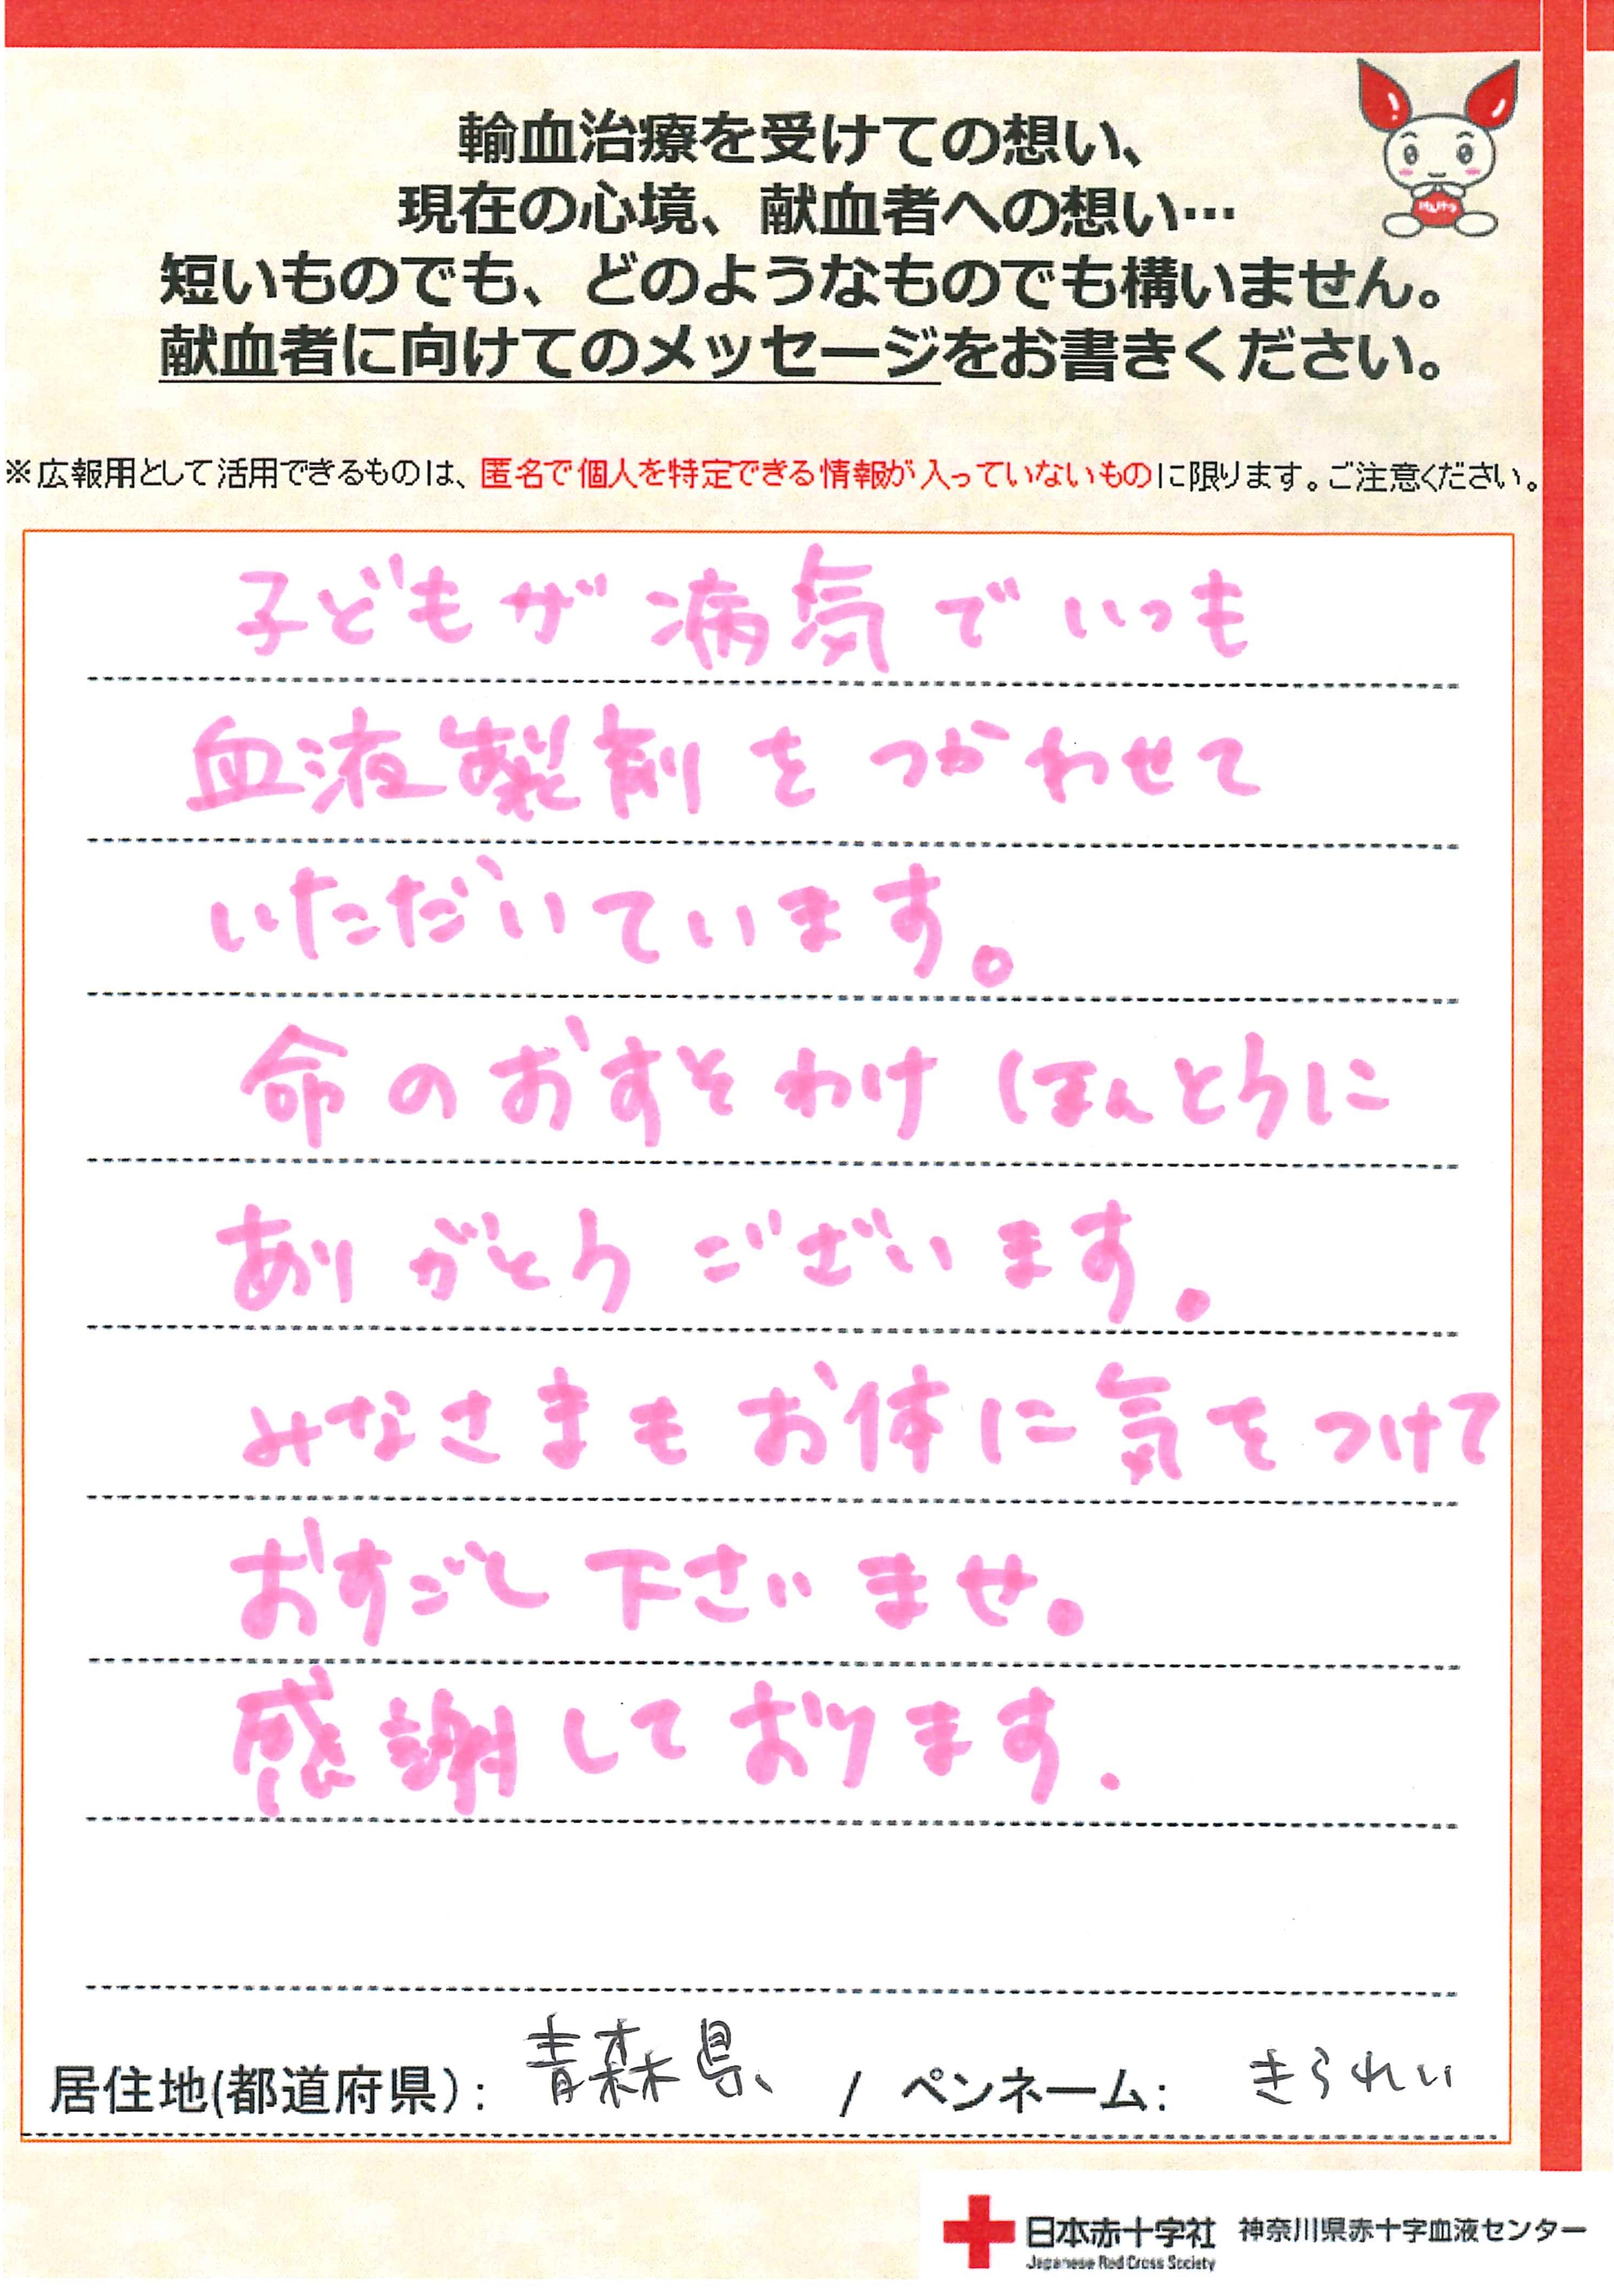 輸血治療を受けての想い、
現在の心境、献血者への想い…
短いものでも、どのようなものでも構いません。
献血者に向けてのメッセージをお書きください。
※広報用として活用できるものは、匿名で個人を特定できる情報が入っていないものに限ります。ご注意ください。
子どもが病気でいつも
血液製剤をつかわせて
いただいています。
命のおすそわけほんとうに
ありがとうございます。
みなさまもお体に気をつけて
おすごし下さいませ。
感謝しております.
居住地(都道府県): 青森県、 / ペンネーム: きられい
日本赤十字社 神奈川県赤十字血液センター
Japanese Red Cross Society